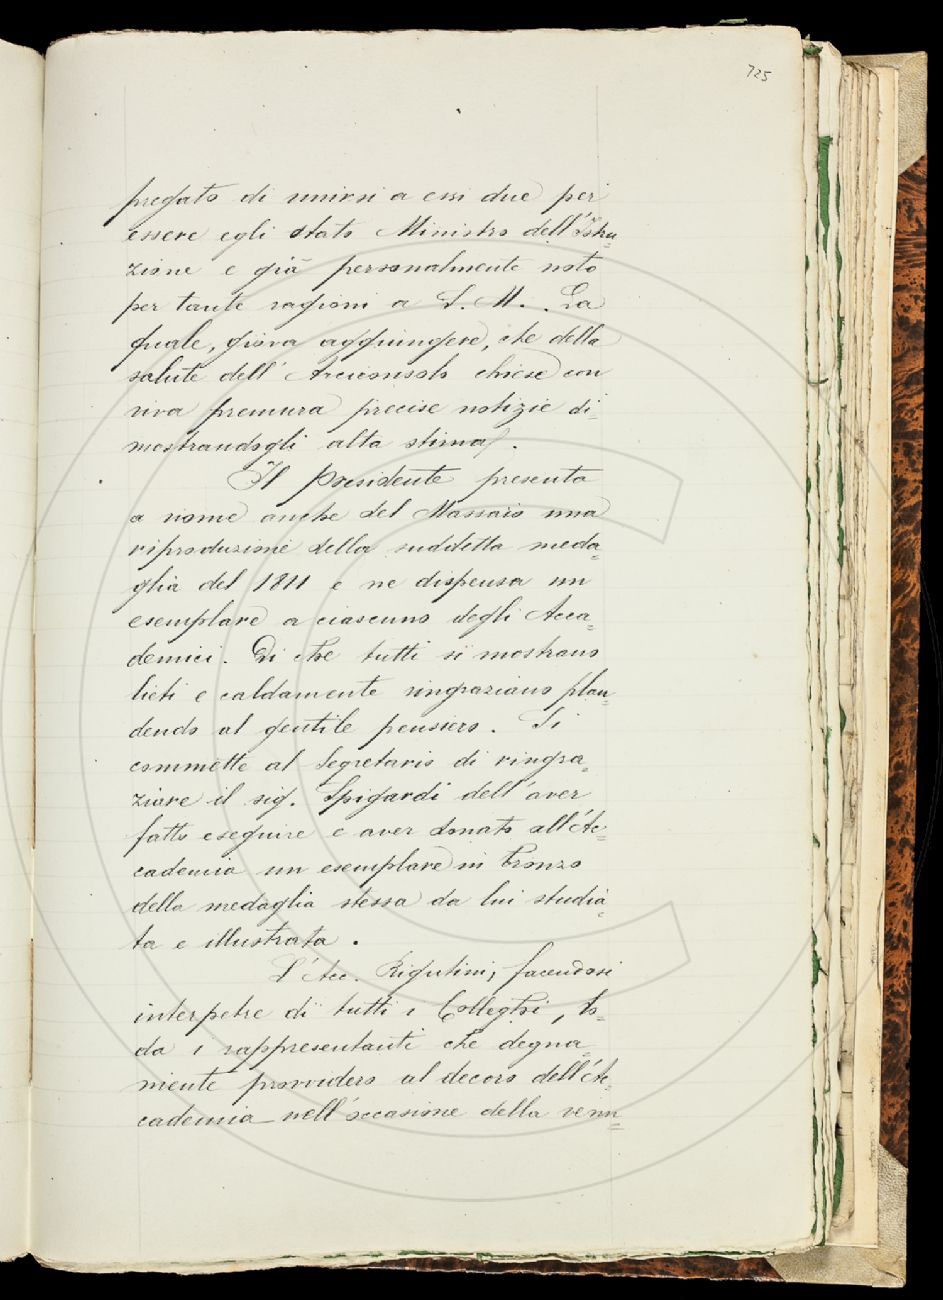 725
pregato di unirsi a essi due per
essere egli stato Ministro dell'Istru=
zione e già personalmente noto
per tante ragioni a S. M.. La
quale, giova aggiungere, che della
salute dell'Arciconsolo chiese con
viva premura precise notizie di=
mostrandogli alta stima.
Il Presidente presenta
a nome anche del Massaio una
riproduzione della suddetta meda=
glia del 1811 e ne dispensa un
esemplare a ciascuno degli Acca=
demici. Di che tutti si mostrano
lieti e caldamente ringraziano plau=
dendo al gentile pensiero. Si
commette al Segretario di ringra=
ziare il sig. Spigardi dell'aver
fatto eseguire e aver donato all'Ac=
cademia un esemplare in bronzo
della medaglia stessa da lui studia=
ta e illustrata.
L'Acc. Rigutini, facendosi
interpetre di tutti i Colleghi, lo=
da i rappresentanti che degna=
mente provvidero al decoro dell'Ac=
cademia nell'occasione della venu=